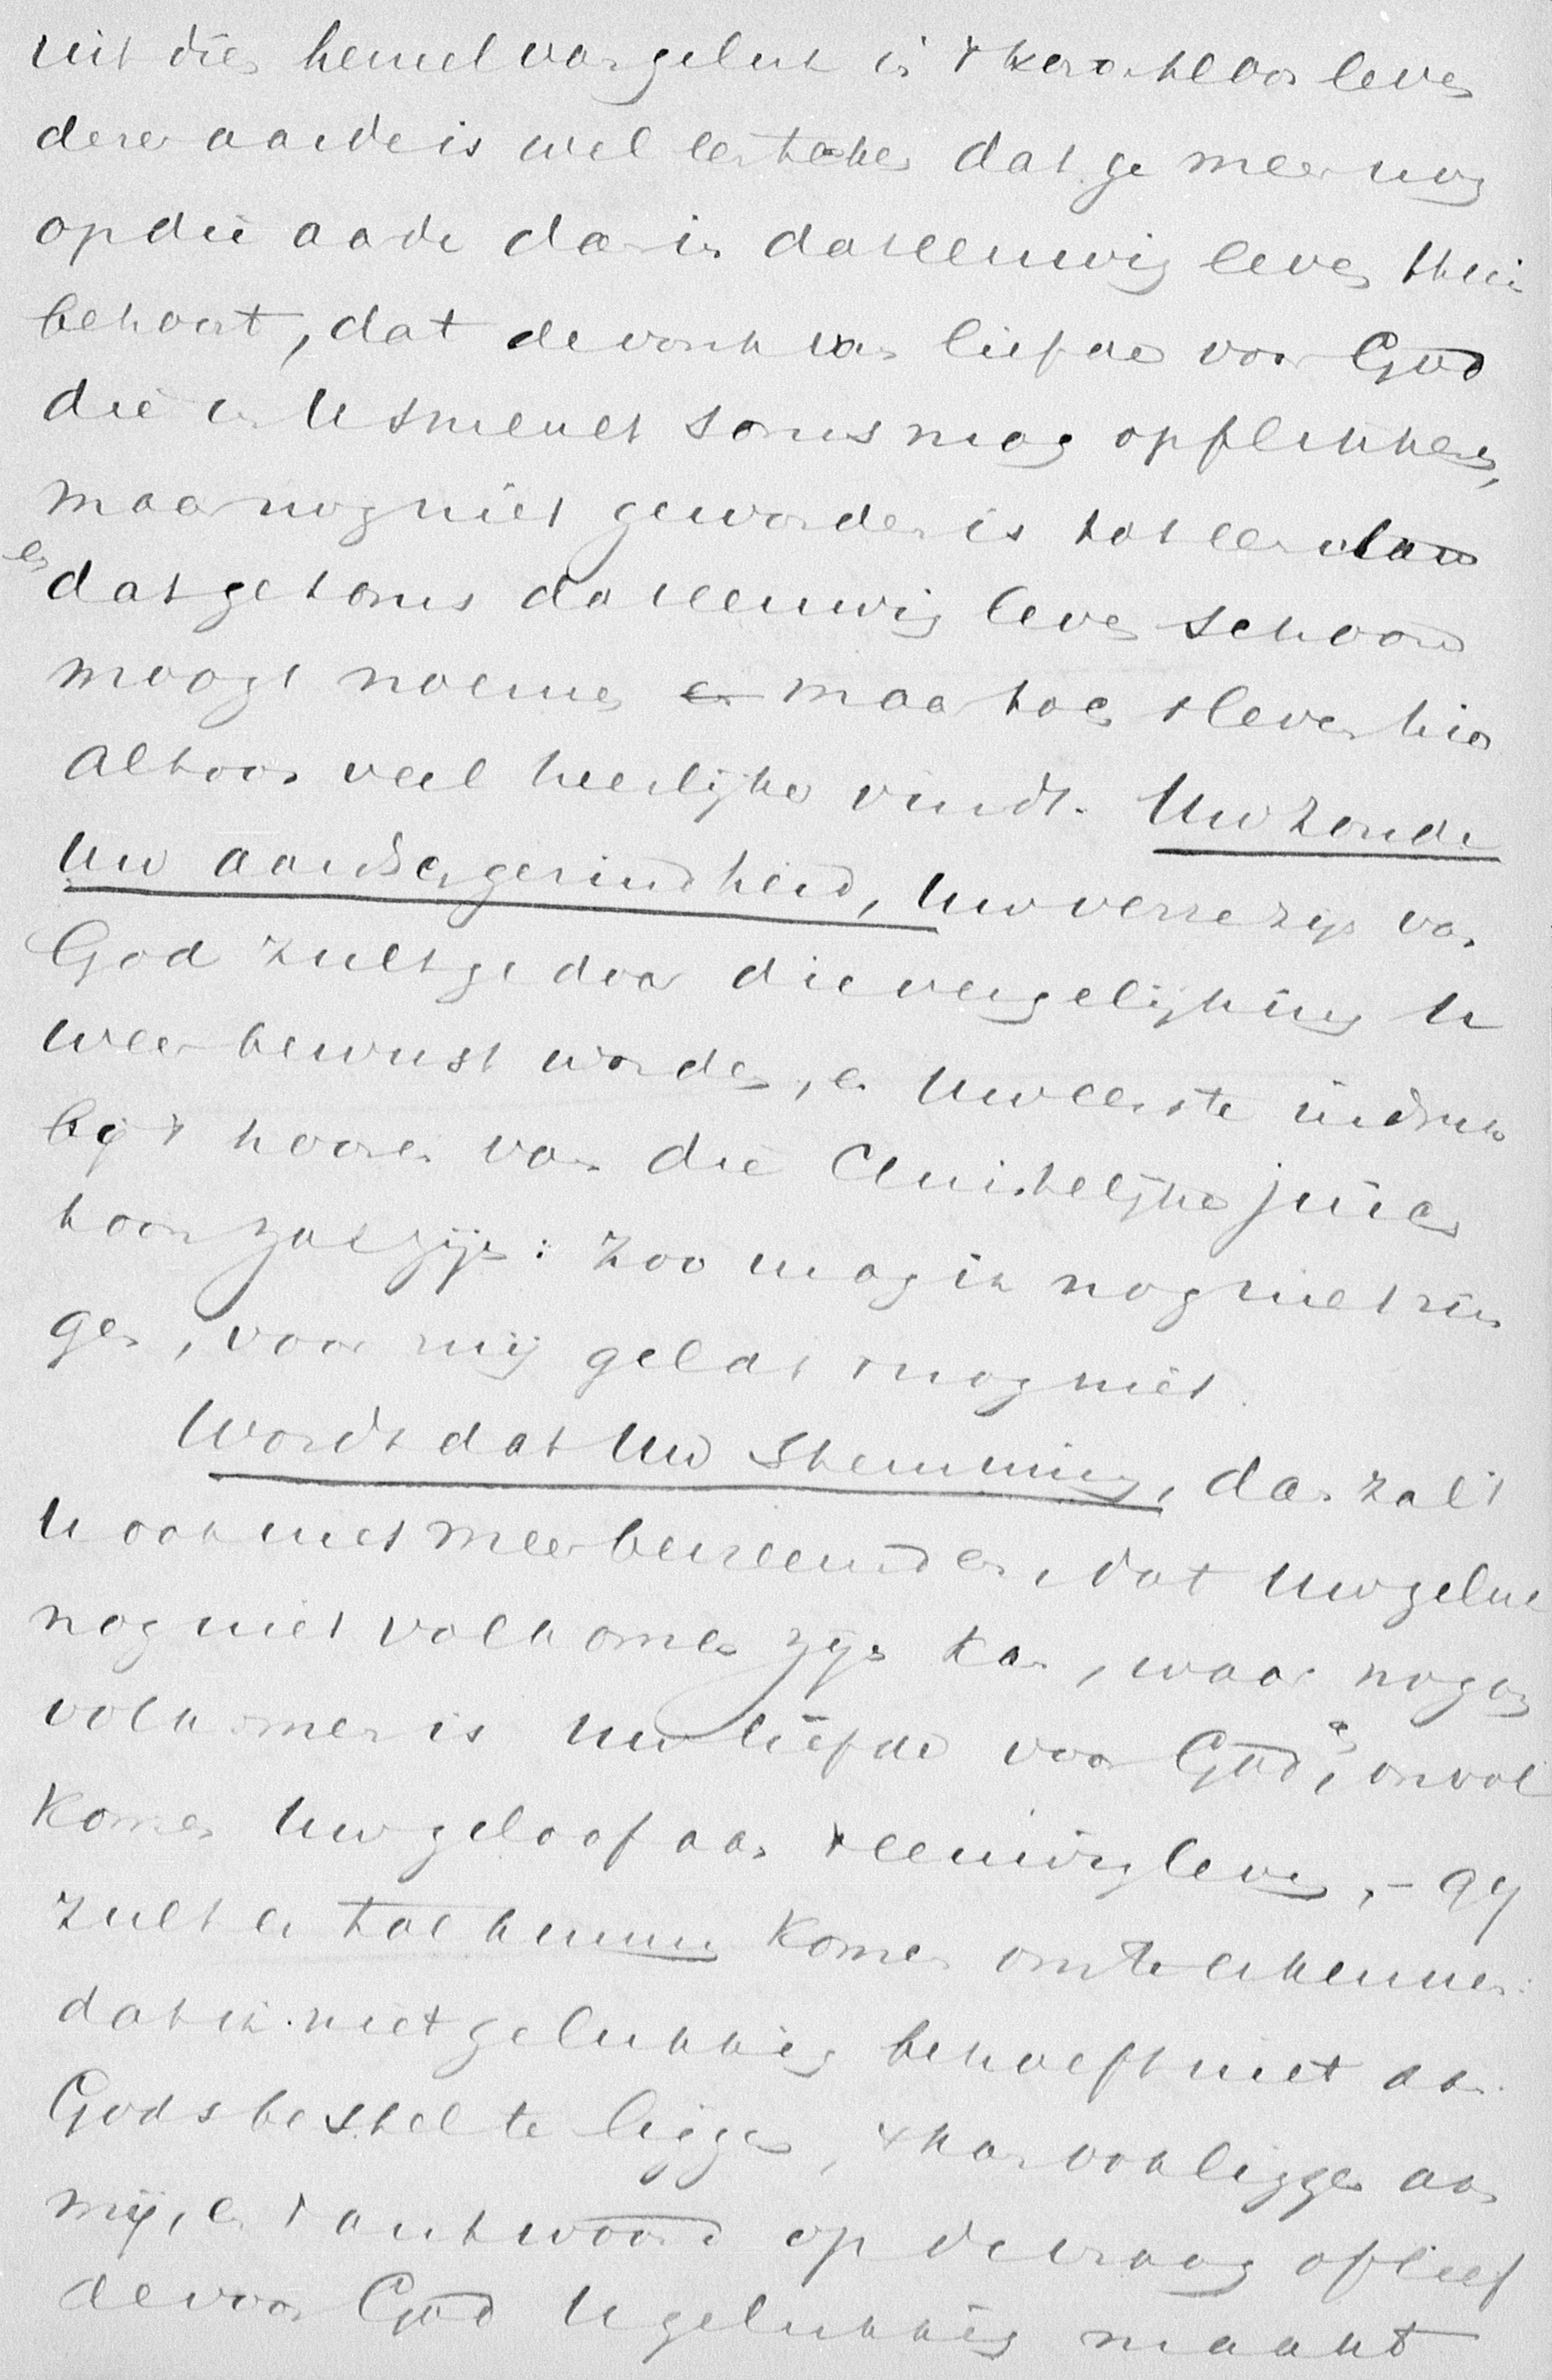 uit dien hemel van geluk in 't leven
dezer aarde is wel een teken dat ge meer nog
op die aarde dan in dat eeuwig leven thuis
behoort, dat de vonk van liefde voor God
die in U smeult soms mag opflikkeren,
maar nog niet geworden is tot een vlam
en dat ge soms dat eeuwig leven schoon
moogt noemen maar toch 't leven hier
altoos veel heerlijker vindt. Uw zonde
Uw aardsgezindheid, Uw verre zijn van
God zult ge door die vergelijking U
weer bewust worden, en Uw eerste indruk
bij 't hooren van die Christelijke
toon zal zijn: zoo mag ik nog niet zin
gen, voor mij geldt nog niet.
Wordt dat Uw stemming, dan zal 't
U ook niet meer bevreemden, dat Uw geluk
nog niet volkomen zijn kan, waar nog on
volkomen is Uw liefde voor God, en onvol
komen Uw geloof aan 't eeuwig leven, - gij
zult er toe kunnen komen om te erkennen:
dat ik niet gelukkig behoeft niet aan
Gods bestel te liggen, 't kan ook liggen aan
mij, en 't antwoord op de vraag of lief
de voor God U gelukkig maakt